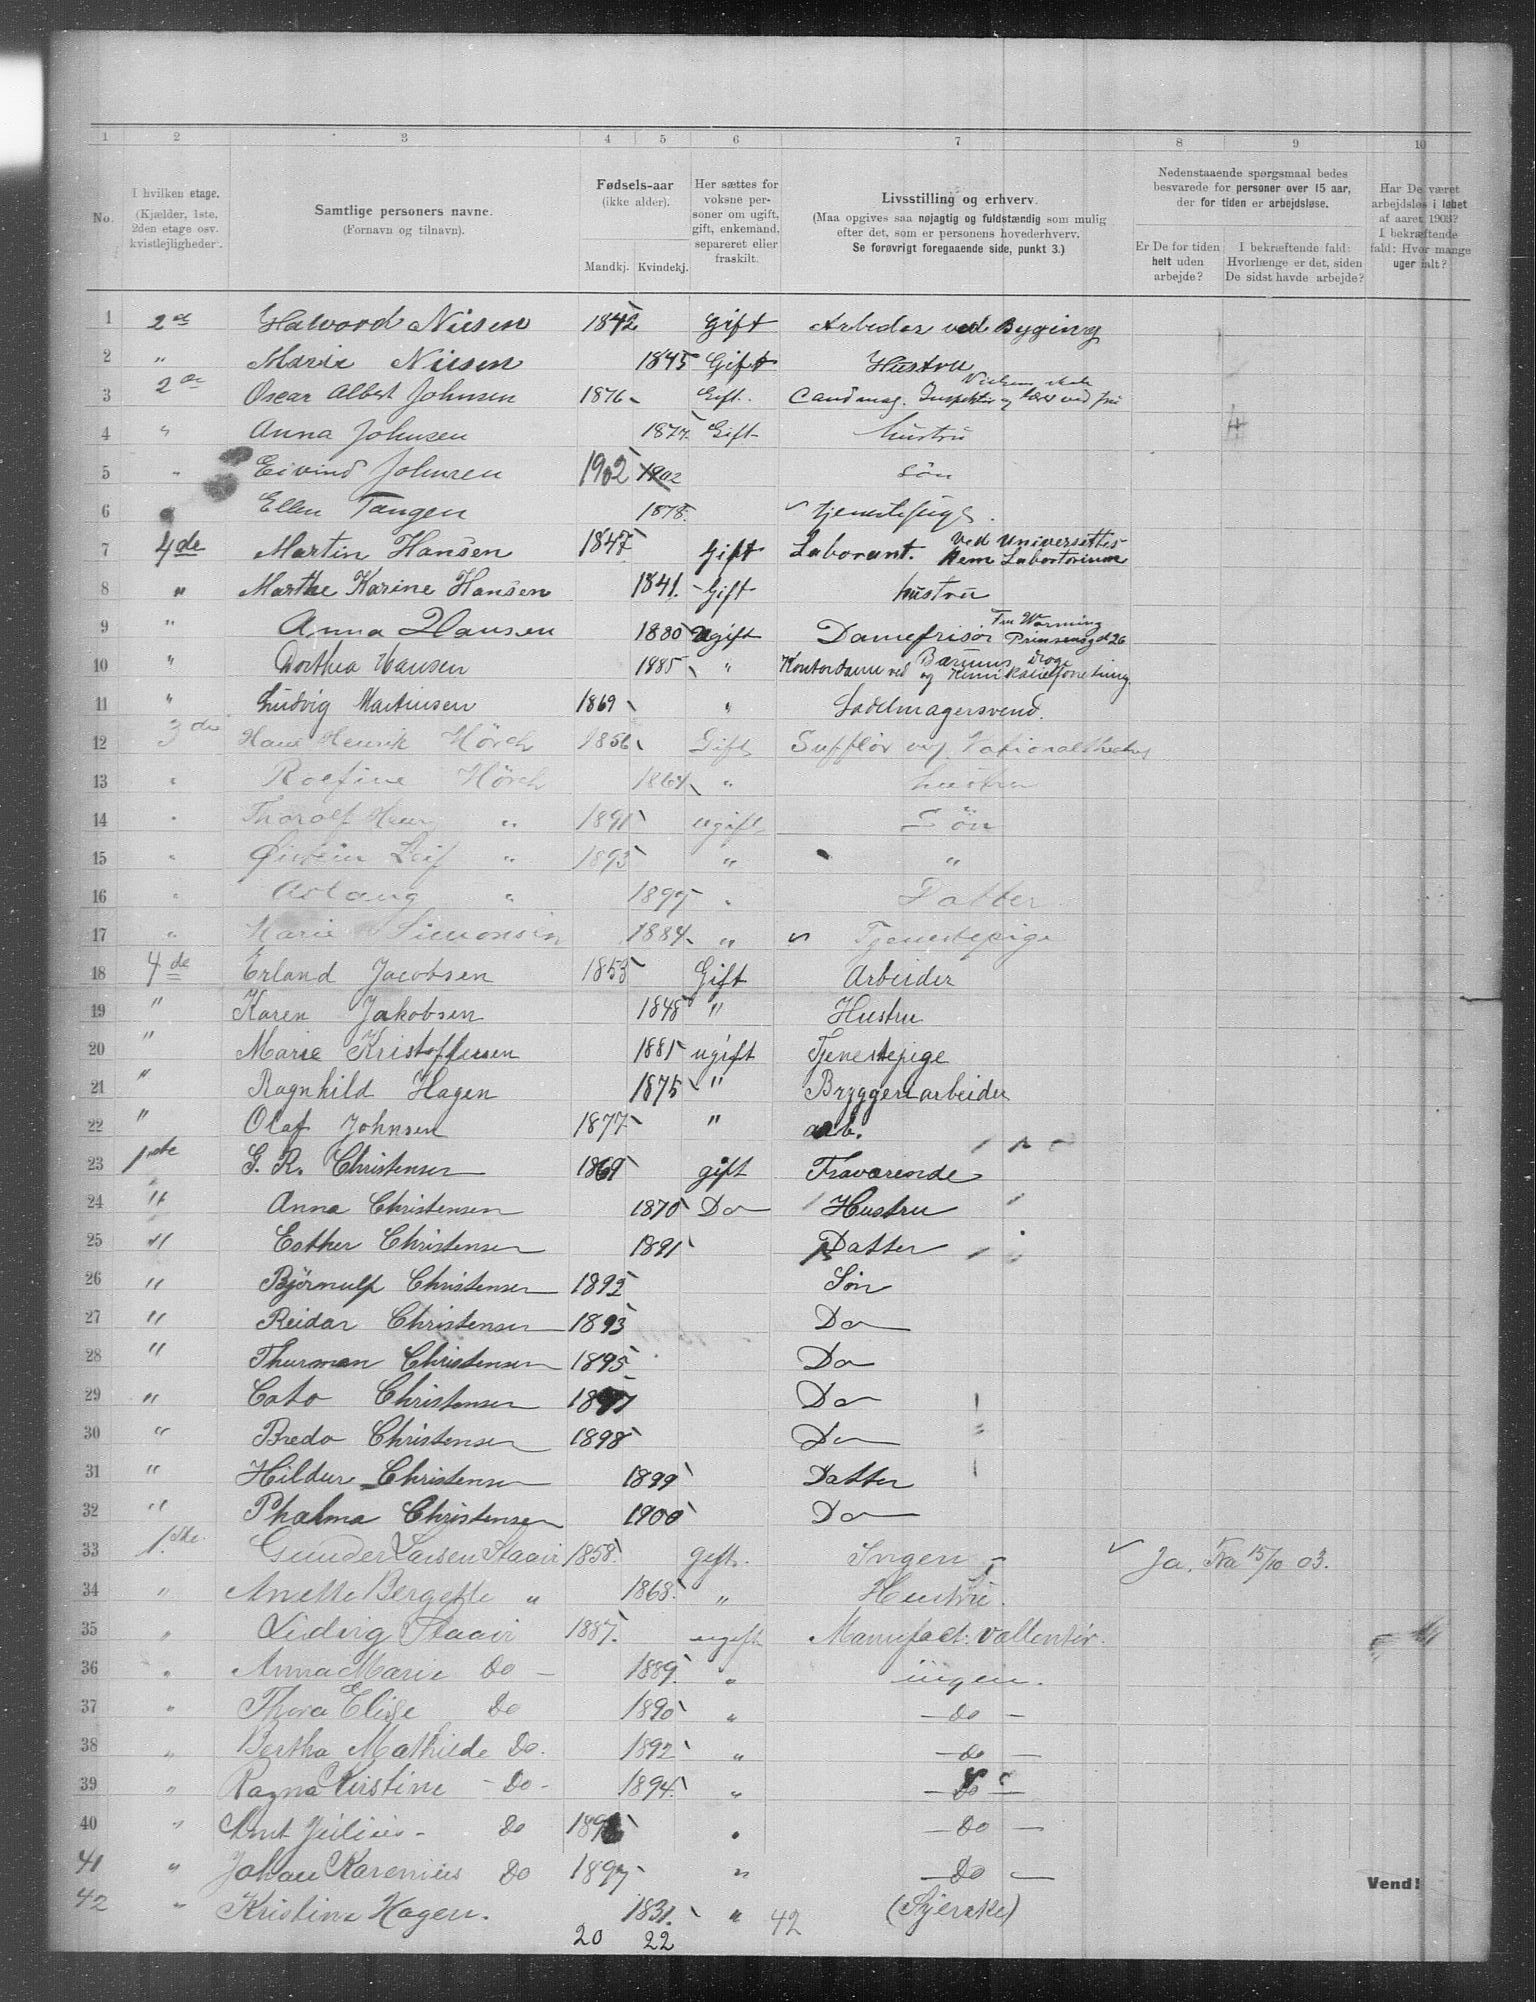 1 2 3 4 5 6 7 8 9 10
No.
I hvilken etage.
(Kjælder, 1ste,
2den etage osv.
kvistlejligheder.
Samtlige personers navne.
(Fornavn og tilnavn).
Fødsels-aar
(ikke alder).
Mandkj. Kvindekj.
Her sættes for
voksne per-
soner om ugift,
gift, enkemand,
separeret eller
fraskilt.
Livsstilling og erhverv.
(Maa opgives saa nøjagtig og fuldstændig som mulig
efter det, som er personens hovederhverv.
Se forøvrigt foregaaende side, punkt 3.)
Nedenstaaende spørgsmaal bedes
besvarede for personer over 15 aar,
der for tiden er arbejdsløse.
Er De for tiden
helt uden
arbejde?
I bekræftende fald:
Hvorlænge er det, siden
De sidst havde arbejde?
Har De været
arbejdsløs i løbet
af aaret 1903?
I bekræftende
fald: Hvor mange
uger ialt?
1 2de Halvord Nilsen 1842 Gift Arbeider ved Byging
2 " Marie Nilsen 1845 Gift Hustru
3 2de Oscar Albert Johnsen 1876 Gift. Cand mag. Inspektør og lærer ved
4 " Anna Johnsen 1877 Gift hustru
5 " Eivind Johnsen 1902 1902 søn
6 " Ellen Tangen 1878. tjenestepige.
7 4de Martin Hansen 1847 Gift Laborant. ved Universitets Kem Labortorium
8 " Marthe Karine Hansen 1841. Gift hustru
9 " Anna Hansen 1880 Ugift Damefrisør Fru Warming Prinsensgd 26
10 " Dorthea Hansen 1885 " Kontordame ved Bærums Droge og Kemikalieforretning.
11 " Ludvig Martinsen 1869 " Sadelmagersvend.
12 3die Hans Henrik Hörch 1856 Gift Sufflör ved Nationaltheatret
13 " Rolfine Hörch 1864 " hustru
14 " Thorolf Henr " 1891 ugift Sön
15 " Øistein Leif " 1893 " "
16 " Aslaug " 1897 " Datter
17 " Marie Simonsen 1884 " Tjenestepige
18 4de Erland Jacobsen 1853 Gift Arbeider
19 " Karen Jakobsen 1848 " Hustru
20 " Marie Kristoffersen 1881 ugift Tjenestepige
21 " Ragnhild Hagen 1875 " Bryggeriarbeider
22 " Olaf Johnsen 1877 " arb.
23 1ste G. R. Christensen 1869 gift Fraværende
24 " Anna Christensen 1870 Do Hustru
25 " Esther Christensen 1891 Datter
26 " Björnulf Christensen 1892 Sön
27 " Reidar Christensen 1893 Do
28 " Thurman Christensen 1895 Do
29 " Cato Christensen 1897 Do
30 " Bredo Christensen 1898 Do
31 " Hildur Christensen 1899 Datter
32 " Thalma Christensen 1900 Do
33 1ste Gunder Larsen Staair 1858. gift. Ingen Ja, Fra 15/10 03.
34 " Anette Bergette " 1868. " Hustru.
35 " Ludvig Staair 1887. ugift Manufact: Vollontör.
36 " Anna Marie Do 1889. " ingen.
37 " Thora Elise Do 1890 " - Do -
38 " Bertha Mathilde Do. 1892 " - Do -
39 " Ragna Kirstine - Do - 1894. " - Do -
40 " Arnt Julius - Do " - Do -
41 " Johan Karenius Do 1897 " - Do -
42 " Kristine Hagen. 1831. "
20 22 42
Vend!